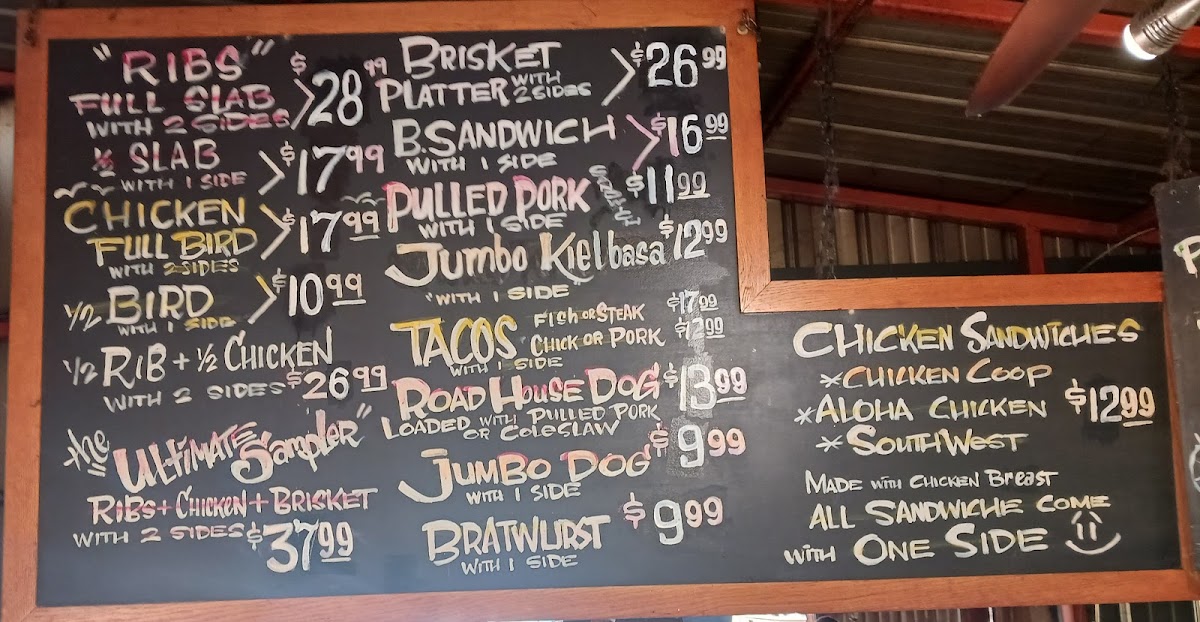 "RIBS"
FULL SLAB
WITH 2 SIDES
$28 99
½ SLAB
WITH 1 SIDE
$17 99
CHICKEN
FULL BIRD
WITH 2 SIDES
$17 99
½ BIRD
WITH 1 SIDE
$10 99
½ RIB + ½ CHICKEN
WITH 2 SIDES $26 99
The
ULTIMATE
Sampler"
RIBS + CHICKEN + BRISKET
WITH 2 SIDES $37 99
BRISKET
PLATTER WITH 2 SIDES
$26 99
B. SANDWICH
WITH 1 SIDE
$16 99
PULLED PORK
WITH 1 SIDE
$11 99
Jumbo Kielbasa $12 99
"WITH 1 SIDE"
TACOS FISH OR STEAK $17 99
CHICK OR PORK $12 99
WITH 1 SIDE
ROAD HOUSE DOG $13 99
LOADED WITH PULLED PORK
OR COLESLAW
JUMBO DOG $9 99
WITH 1 SIDE
BRATWURST $9 99
WITH 1 SIDE
CHICKEN SANDWICHES
*CHICKEN COOP
*ALOHA CHICKEN $12 99
*SOUTHWEST
MADE WITH CHICKEN BREAST
ALL SANDWICHE COME
WITH ONE SIDE